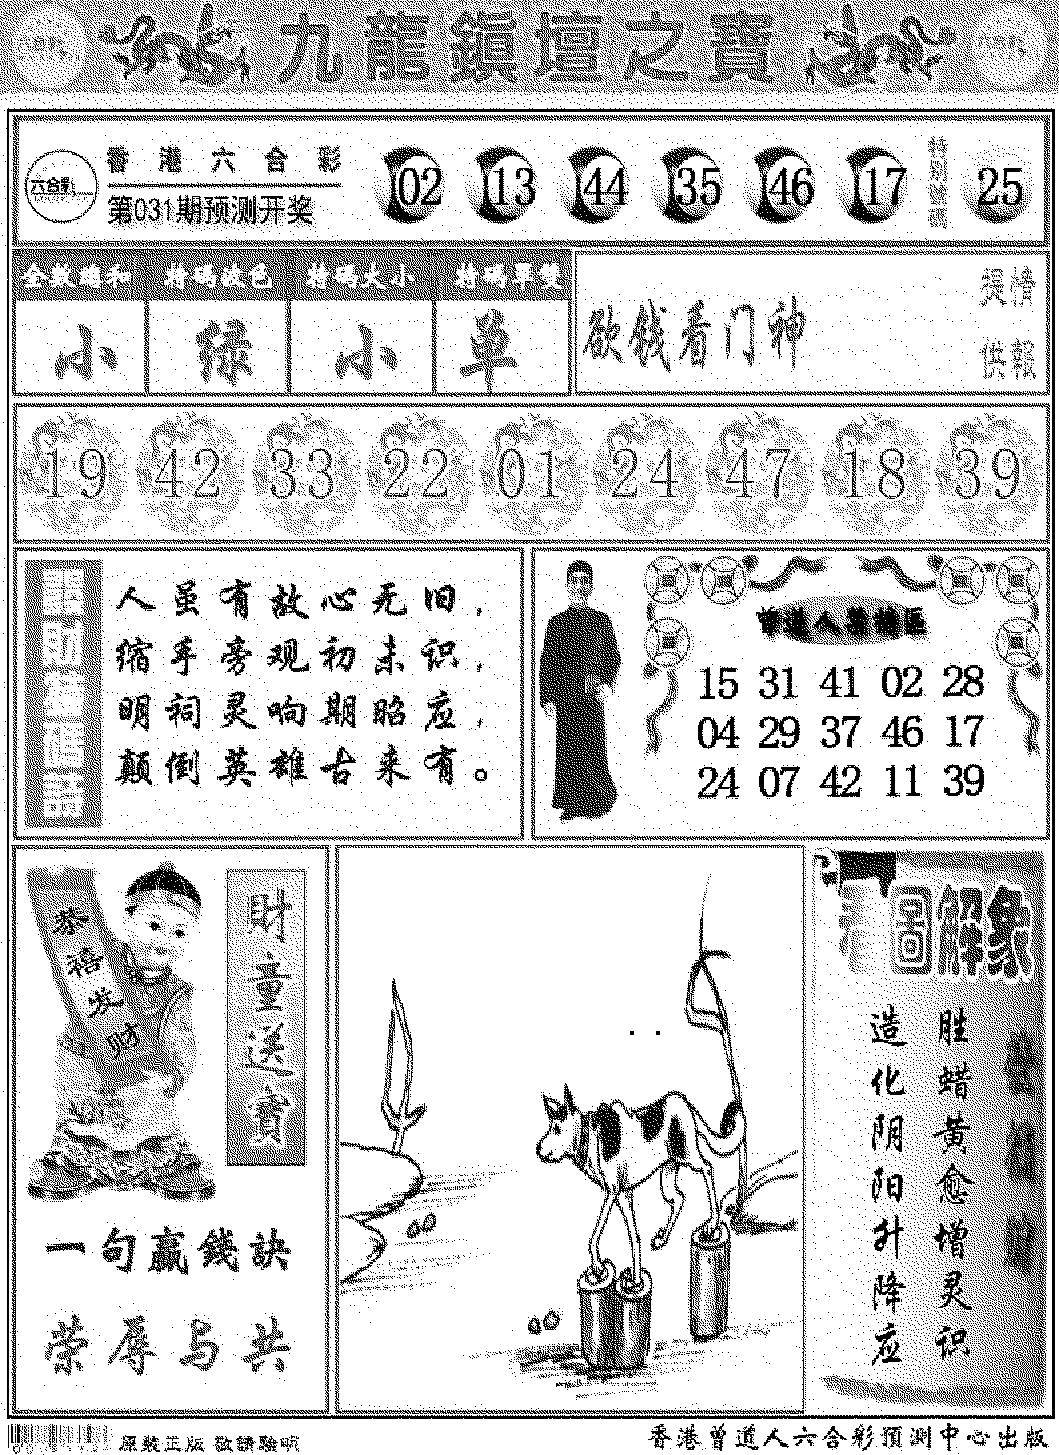 九龍鎮壇之寶
六合彩
香港六合彩
第031期预测开奖
02 13 44 35 46 17
25
特码波色
特码大小
特码单雙
小 绿 小 单
欲钱看门神
提供
情報
19 42 33 22 01 24 47 18 39
人虽有故心无旧，
缩手旁观初未识，
明祠灵响期昭应，
颠倒英雄古来有。
15 31 41 02 28
04 29 37 46 17
24 07 42 11 39
恭禧发财
財童送寶
一句赢錢訣
荣辱与共
看圖解象
胜蜡黄愈增灵识
造化阴阳升降应
原裝正版 敬請驗明
香港曾道人六合彩預測中心出版